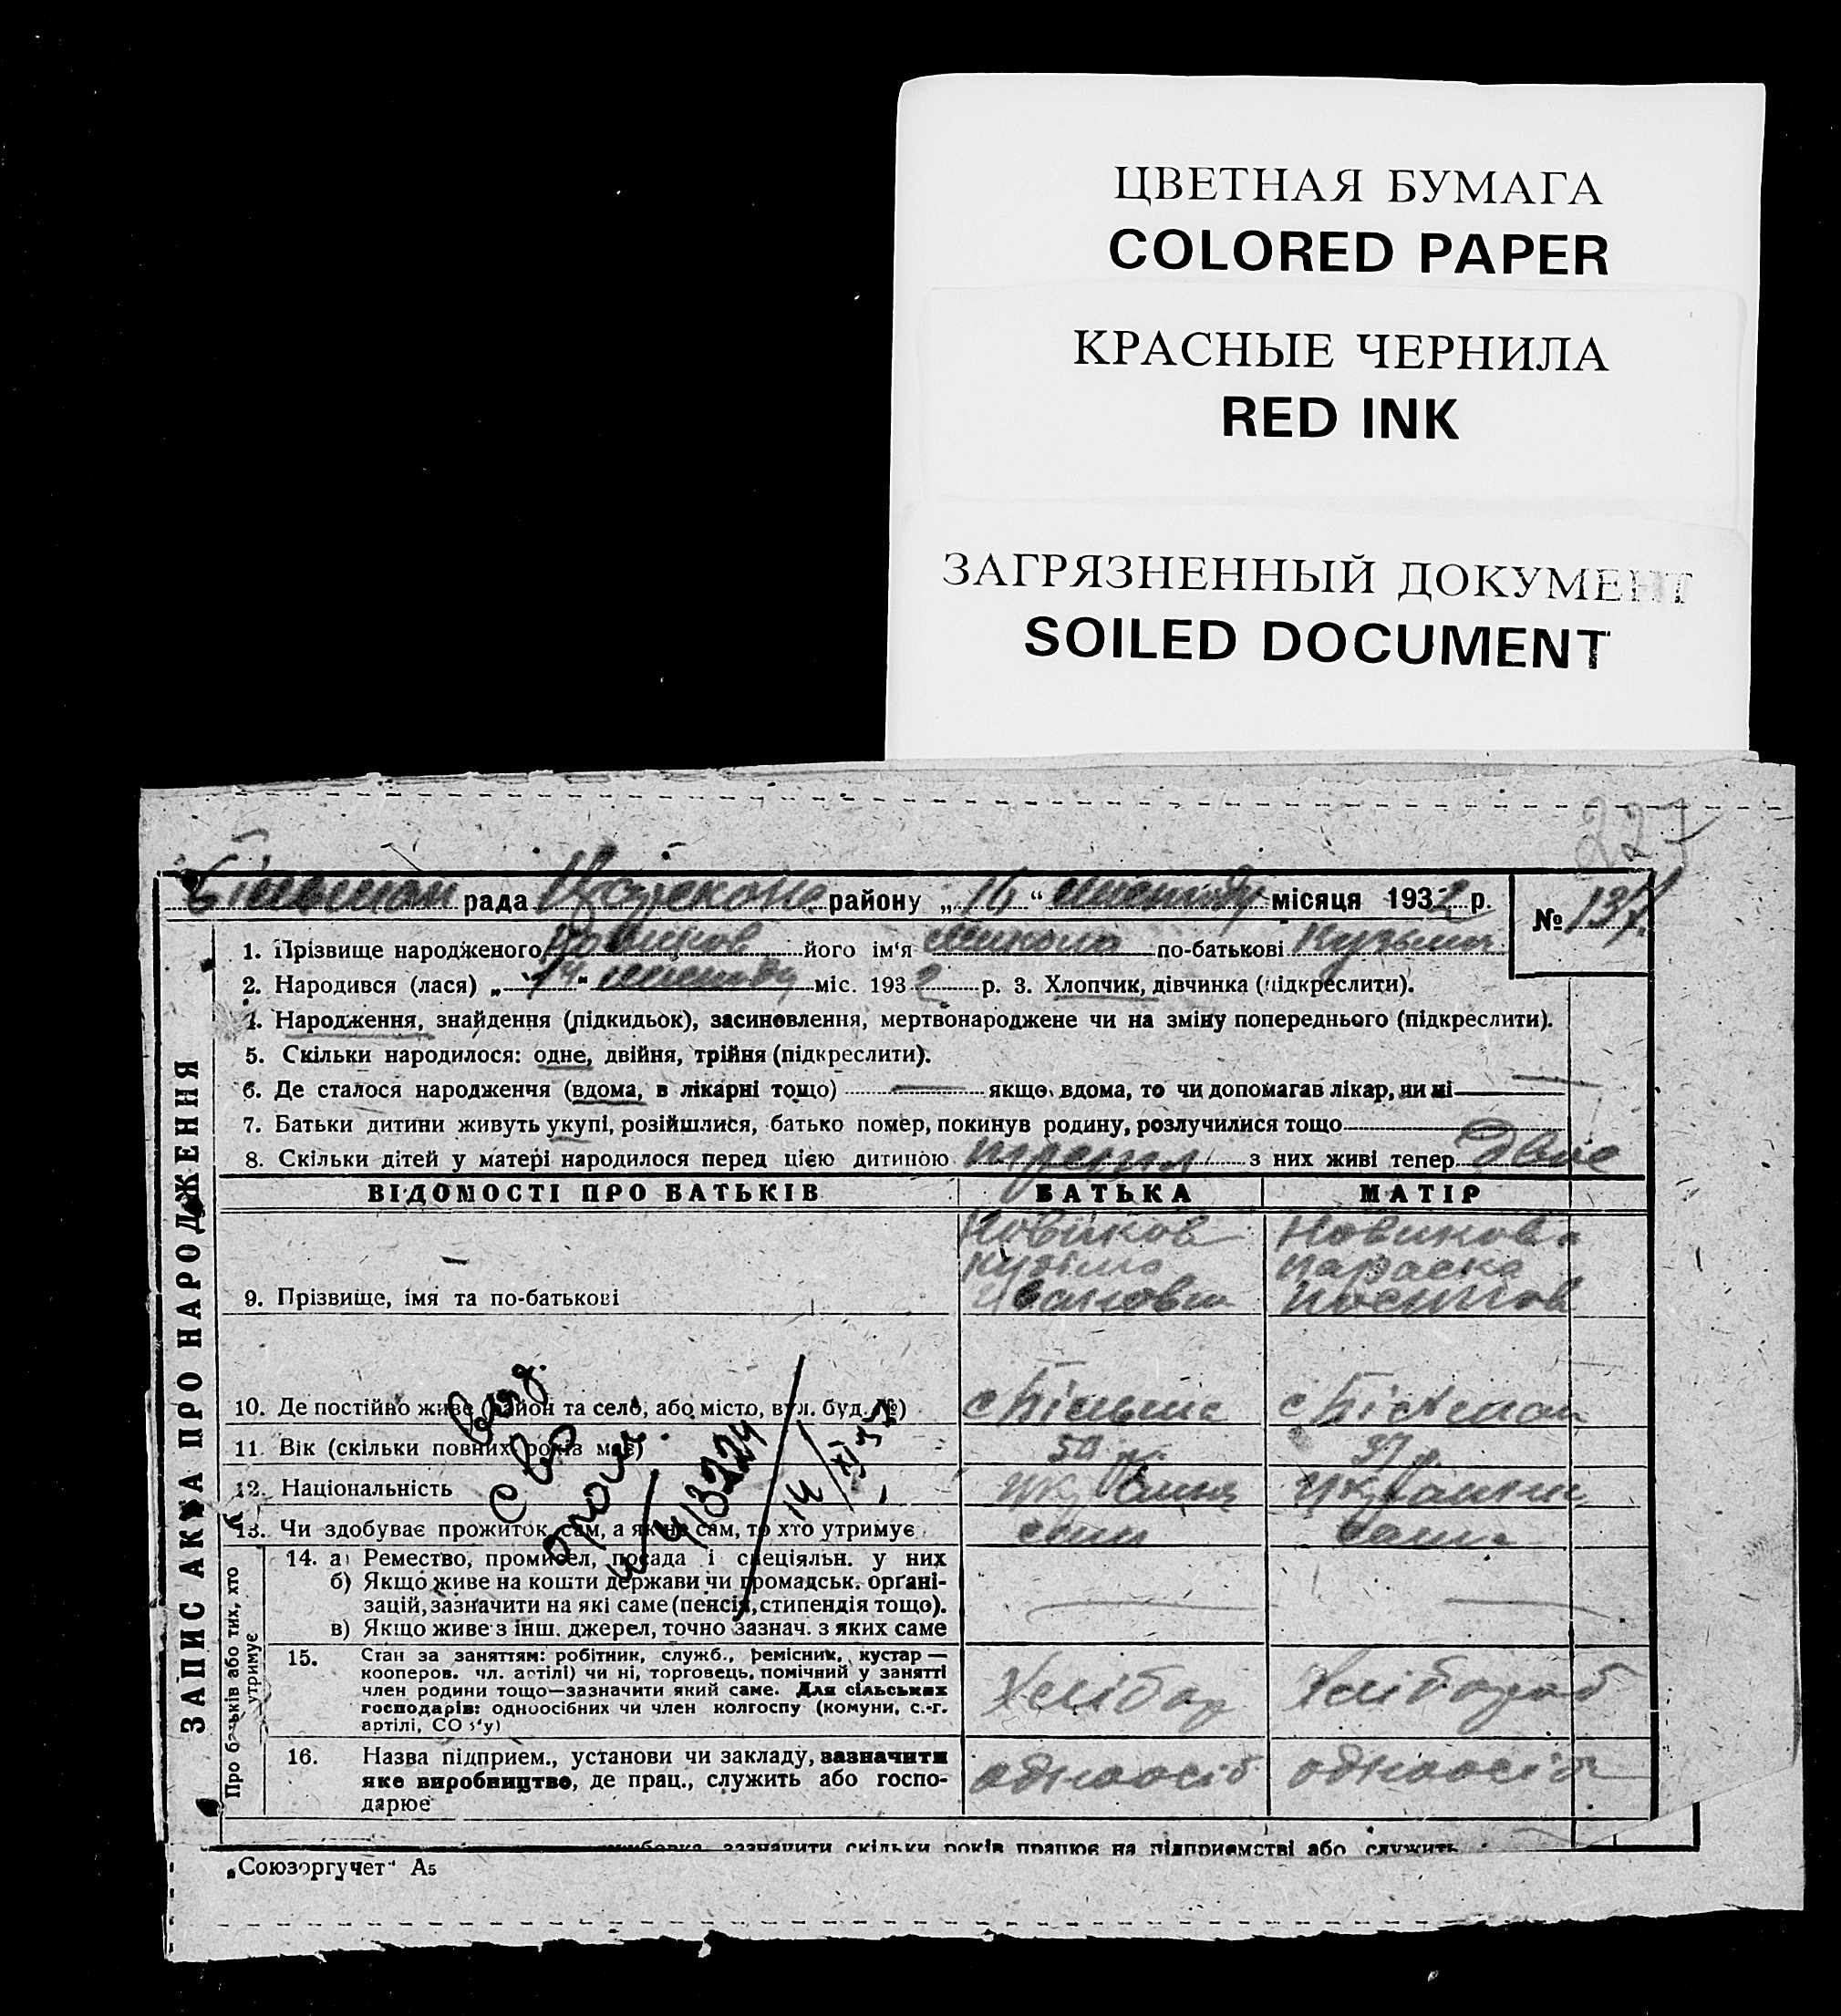 ЦВЕТНАЯ БУМАГА
COLORED PAPER
КРАСНЫЕ ЧЕРНИЛА
RED INK
ЗАГРЯЗНЕННЫЙ ДОКУМЕНТ
SOILED DOCUMENT
223
рада району „16“ місяця 1932 р. № 137
1. Прізвище народженого Новиков його ім'я Микола по-батькові Кузьмич
2. Народився (лася) „14“ міс. 1932 р. 3. Хлопчик, дівчинка (підкреслити).
4. Народження, знайдення (підкидьок), засиновлення, мертвонароджене чи на зміну попереднього (підкреслити).
5. Скільки народилося: одне, двійня, трійня (підкреслити).
6. Де сталося народження (вдома, в лікарні тощо) — якщо вдома, то чи допомагав лікар, чи ні —
7. Батьки дитини живуть укупі, розійшлися, батько помер, покинув родину, розлучилися тощо
8. Скільки дітей у матері народилося перед цією дитиною з них живі тепер двоє
ЗАПИС АКТА ПРО НАРОДЖЕННЯ
ВІДОМОСТІ ПРО БАТЬКІВ БАТЬКА МАТІР
9. Прізвище, імя та по-батькові
Новиков
Кузьма
Иванович
Новикова
Параска
Посипов
10. Де постійно живе (район та село, або місто, вул. буд. №) с с
11. Вік (скільки повних років має) 50 р. 37 р.
12. Національність
13. Чи здобуває прожиток сам, а як не сам, то хто утримує сам сама
Про батьків або тих, хто утримує
14. а) Ремество, промисел, посада і спеціяльн. у них
б) Якщо живе на кошти держави чи громадськ. орґані-
зацій, зазначити на які саме (пенсія, стипендія тощо).
в) Якщо живе з інш. джерел, точно зазнач. з яких саме
15. Стан за заняттям: робітник, служб., ремісник, кустар —
кооперов. чл. артілі) чи ні, торговець, помічний у занятті
член родини тощо—зазначити який саме. Для сільських
господарів: одноосібних чи член колгоспу (комуни, с.-г.
артілі, СОЗ'у)
Хлібор Хлібороб
16. Назва підприєм., установи чи закладу, зазначити
яке виробництво, де прац., служить або госпо-
дарює
одноосіб одноосібн
Выд.
с во
413224
14/XI
зазначити скільки років працює на підприємстві або служить
„Союзоргучет“ А5